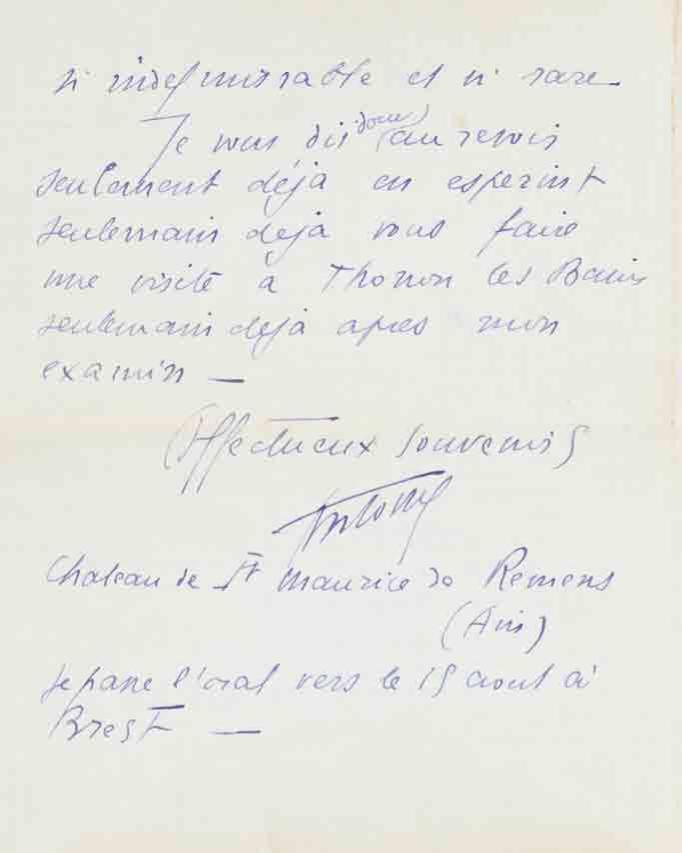 si indefinissable et si rare
Je vous dis donc (au revoir
seulement déjà en esperint
seulemain deja vous faire
une visite à Thonon les Bains
seulemain deja apres mon
examin —
Affectueux souvenirs
Antoine
Chateau de St Maurice de Remens
(Ain)
Je passe l'oral vers le 15 aout à
Brest —